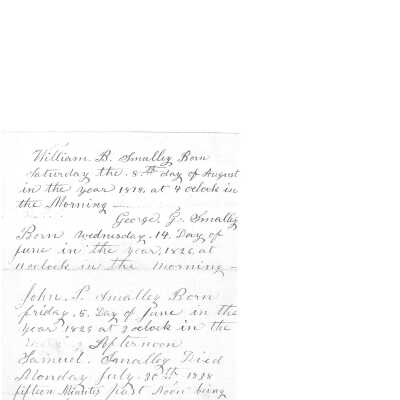 William B. Smalley Born
Saturday the 8th day of August
in the year 1818, at 4 oclock in
the Morning
George G. Smalley
Born Wednesday 14 Day of
June in the year 1826 at
oclock in the Morning
John S. Smalley Born
friday 5 Day of June in the
Year 1829 at 2 oclock in the
Afternoon
Samuel Smalley Died
Monday July 30th 1838
fifteen Minutes past Noon being